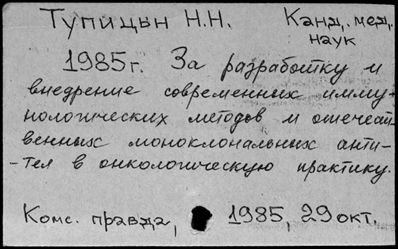 Тупицын Н.Н. Канд. мед. наук
1985г. За разработку и
внедрение современных имму-
нологических методов и отечест-
венных моноклональных анти-
-тел в онкологическую практику.
Комс. правда, 1985, 29 окт.